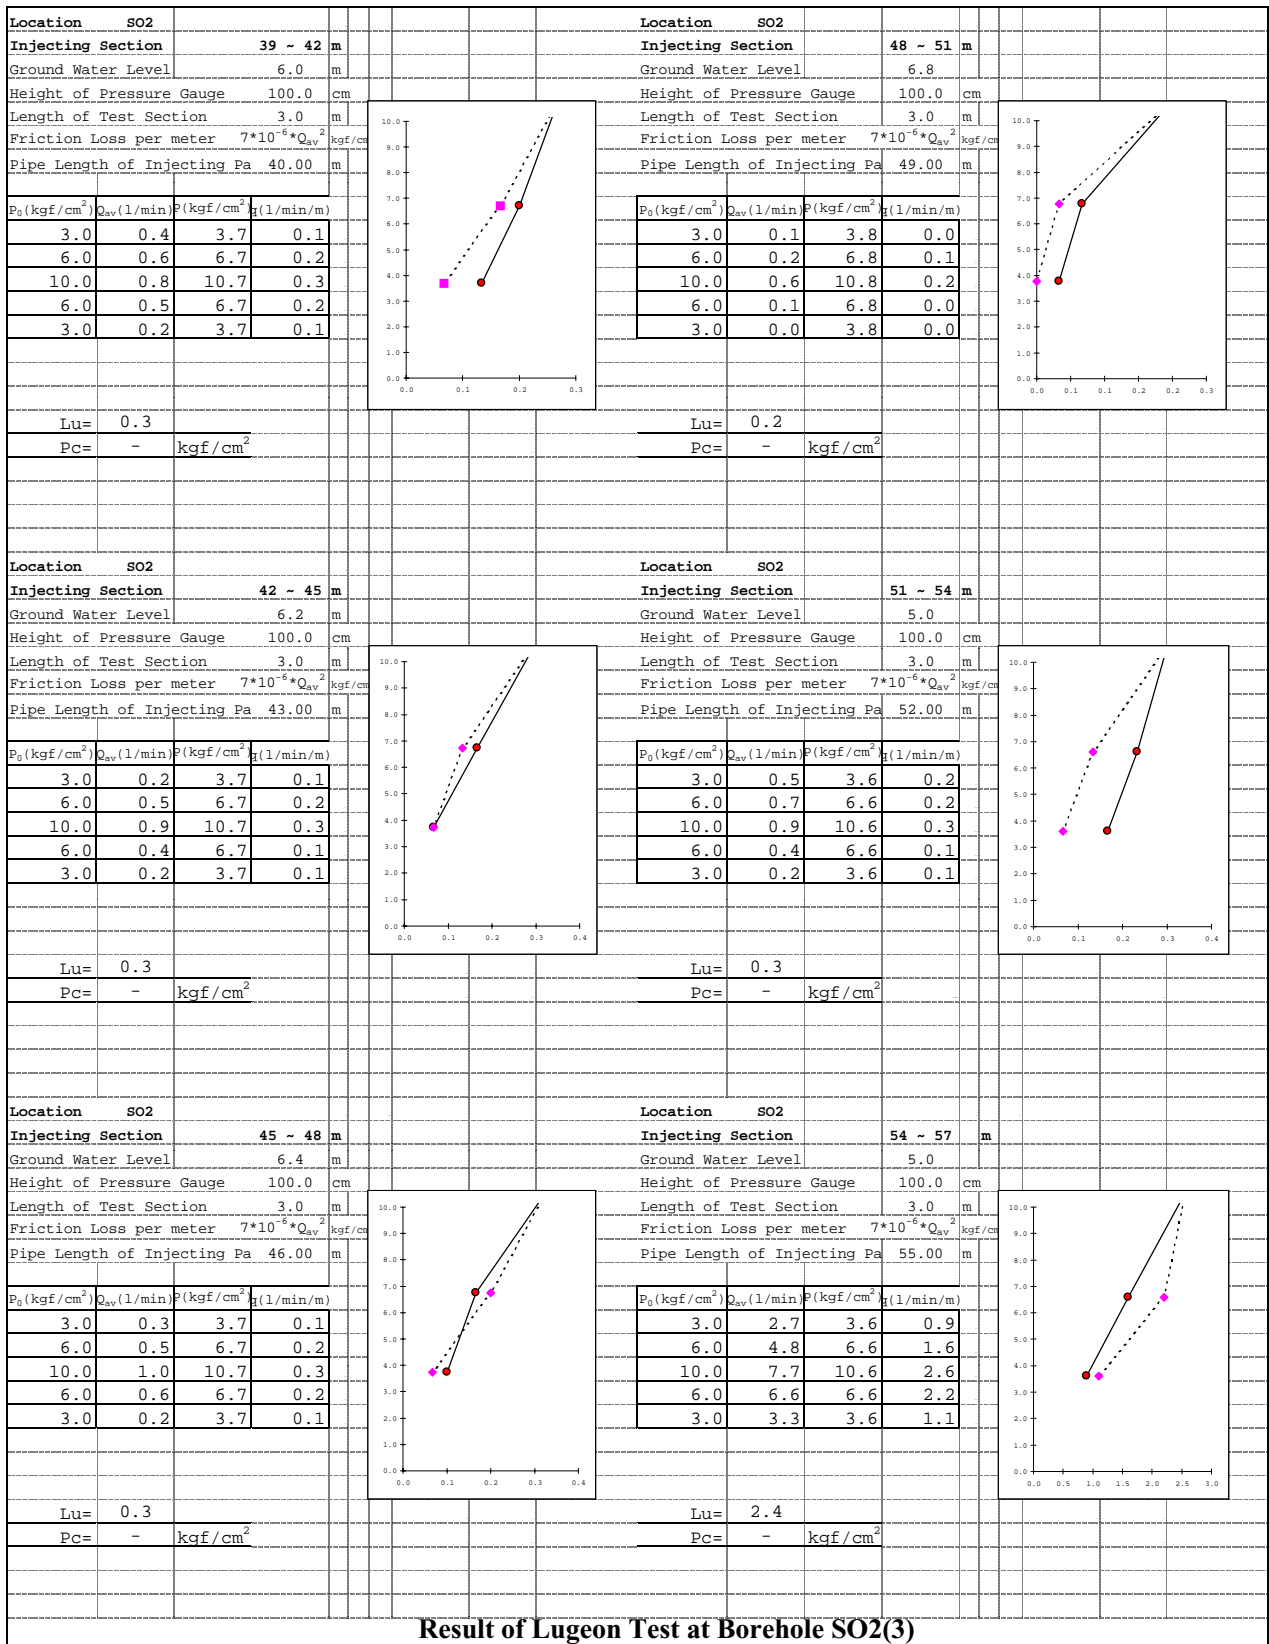 Location SO2
Injecting Section 39 ~ 42 m
Ground Water Level 6.0 m
Height of Pressure Gauge 100.0 cm
Length of Test Section 3.0 m
Friction Loss per meter 7*10⁻⁶*Qav² kgf/cm
Pipe Length of Injecting Pa 40.00 m
P₀(kgf/cm²) Qav(l/min) P(kgf/cm²) q(l/min/m)
3.0 0.4 3.7 0.1
6.0 0.6 6.7 0.2
10.0 0.8 10.7 0.3
6.0 0.5 6.7 0.2
3.0 0.2 3.7 0.1
Lu= 0.3
Pc= - kgf/cm²
10.0
9.0
8.0
7.0
6.0
5.0
4.0
3.0
2.0
1.0
0.0
0.0 0.1 0.2 0.3
Location SO2
Injecting Section 48 ~ 51 m
Ground Water Level 6.8
Height of Pressure Gauge 100.0 cm
Length of Test Section 3.0 m
Friction Loss per meter 7*10⁻⁶*Qav² kgf/cm
Pipe Length of Injecting Pa 49.00 m
P₀(kgf/cm²) Qav(l/min) P(kgf/cm²) q(l/min/m)
3.0 0.1 3.8 0.0
6.0 0.2 6.8 0.1
10.0 0.6 10.8 0.2
6.0 0.1 6.8 0.0
3.0 0.0 3.8 0.0
Lu= 0.2
Pc= - kgf/cm²
10.0
9.0
8.0
7.0
6.0
5.0
4.0
3.0
2.0
1.0
0.0
0.0 0.1 0.1 0.2 0.2 0.3
Location SO2
Injecting Section 42 ~ 45 m
Ground Water Level 6.2 m
Height of Pressure Gauge 100.0 cm
Length of Test Section 3.0 m
Friction Loss per meter 7*10⁻⁶*Qav² kgf/cm
Pipe Length of Injecting Pa 43.00 m
P₀(kgf/cm²) Qav(l/min) P(kgf/cm²) q(l/min/m)
3.0 0.2 3.7 0.1
6.0 0.5 6.7 0.2
10.0 0.9 10.7 0.3
6.0 0.4 6.7 0.1
3.0 0.2 3.7 0.1
Lu= 0.3
Pc= - kgf/cm²
10.0
9.0
8.0
7.0
6.0
5.0
4.0
3.0
2.0
1.0
0.0
0.0 0.1 0.2 0.3 0.4
Location SO2
Injecting Section 51 ~ 54 m
Ground Water Level 5.0
Height of Pressure Gauge 100.0 cm
Length of Test Section 3.0 m
Friction Loss per meter 7*10⁻⁶*Qav² kgf/cm
Pipe Length of Injecting Pa 52.00 m
P₀(kgf/cm²) Qav(l/min) P(kgf/cm²) q(l/min/m)
3.0 0.5 3.6 0.2
6.0 0.7 6.6 0.2
10.0 0.9 10.6 0.3
6.0 0.4 6.6 0.1
3.0 0.2 3.6 0.1
Lu= 0.3
Pc= - kgf/cm²
10.0
9.0
8.0
7.0
6.0
5.0
4.0
3.0
2.0
1.0
0.0
0.0 0.1 0.2 0.3 0.4
Location SO2
Injecting Section 45 ~ 48 m
Ground Water Level 6.4 m
Height of Pressure Gauge 100.0 cm
Length of Test Section 3.0 m
Friction Loss per meter 7*10⁻⁶*Qav² kgf/cm
Pipe Length of Injecting Pa 46.00 m
P₀(kgf/cm²) Qav(l/min) P(kgf/cm²) q(l/min/m)
3.0 0.3 3.7 0.1
6.0 0.5 6.7 0.2
10.0 1.0 10.7 0.3
6.0 0.6 6.7 0.2
3.0 0.2 3.7 0.1
Lu= 0.3
Pc= - kgf/cm²
10.0
9.0
8.0
7.0
6.0
5.0
4.0
3.0
2.0
1.0
0.0
0.0 0.1 0.2 0.3 0.4
Location SO2
Injecting Section 54 ~ 57 m
Ground Water Level 5.0
Height of Pressure Gauge 100.0 cm
Length of Test Section 3.0 m
Friction Loss per meter 7*10⁻⁶*Qav² kgf/cm
Pipe Length of Injecting Pa 55.00 m
P₀(kgf/cm²) Qav(l/min) P(kgf/cm²) q(l/min/m)
3.0 2.7 3.6 0.9
6.0 4.8 6.6 1.6
10.0 7.7 10.6 2.6
6.0 6.6 6.6 2.2
3.0 3.3 3.6 1.1
Lu= 2.4
Pc= - kgf/cm²
10.0
9.0
8.0
7.0
6.0
5.0
4.0
3.0
2.0
1.0
0.0
0.0 0.5 1.0 1.5 2.0 2.5 3.0
Result of Lugeon Test at Borehole SO2(3)